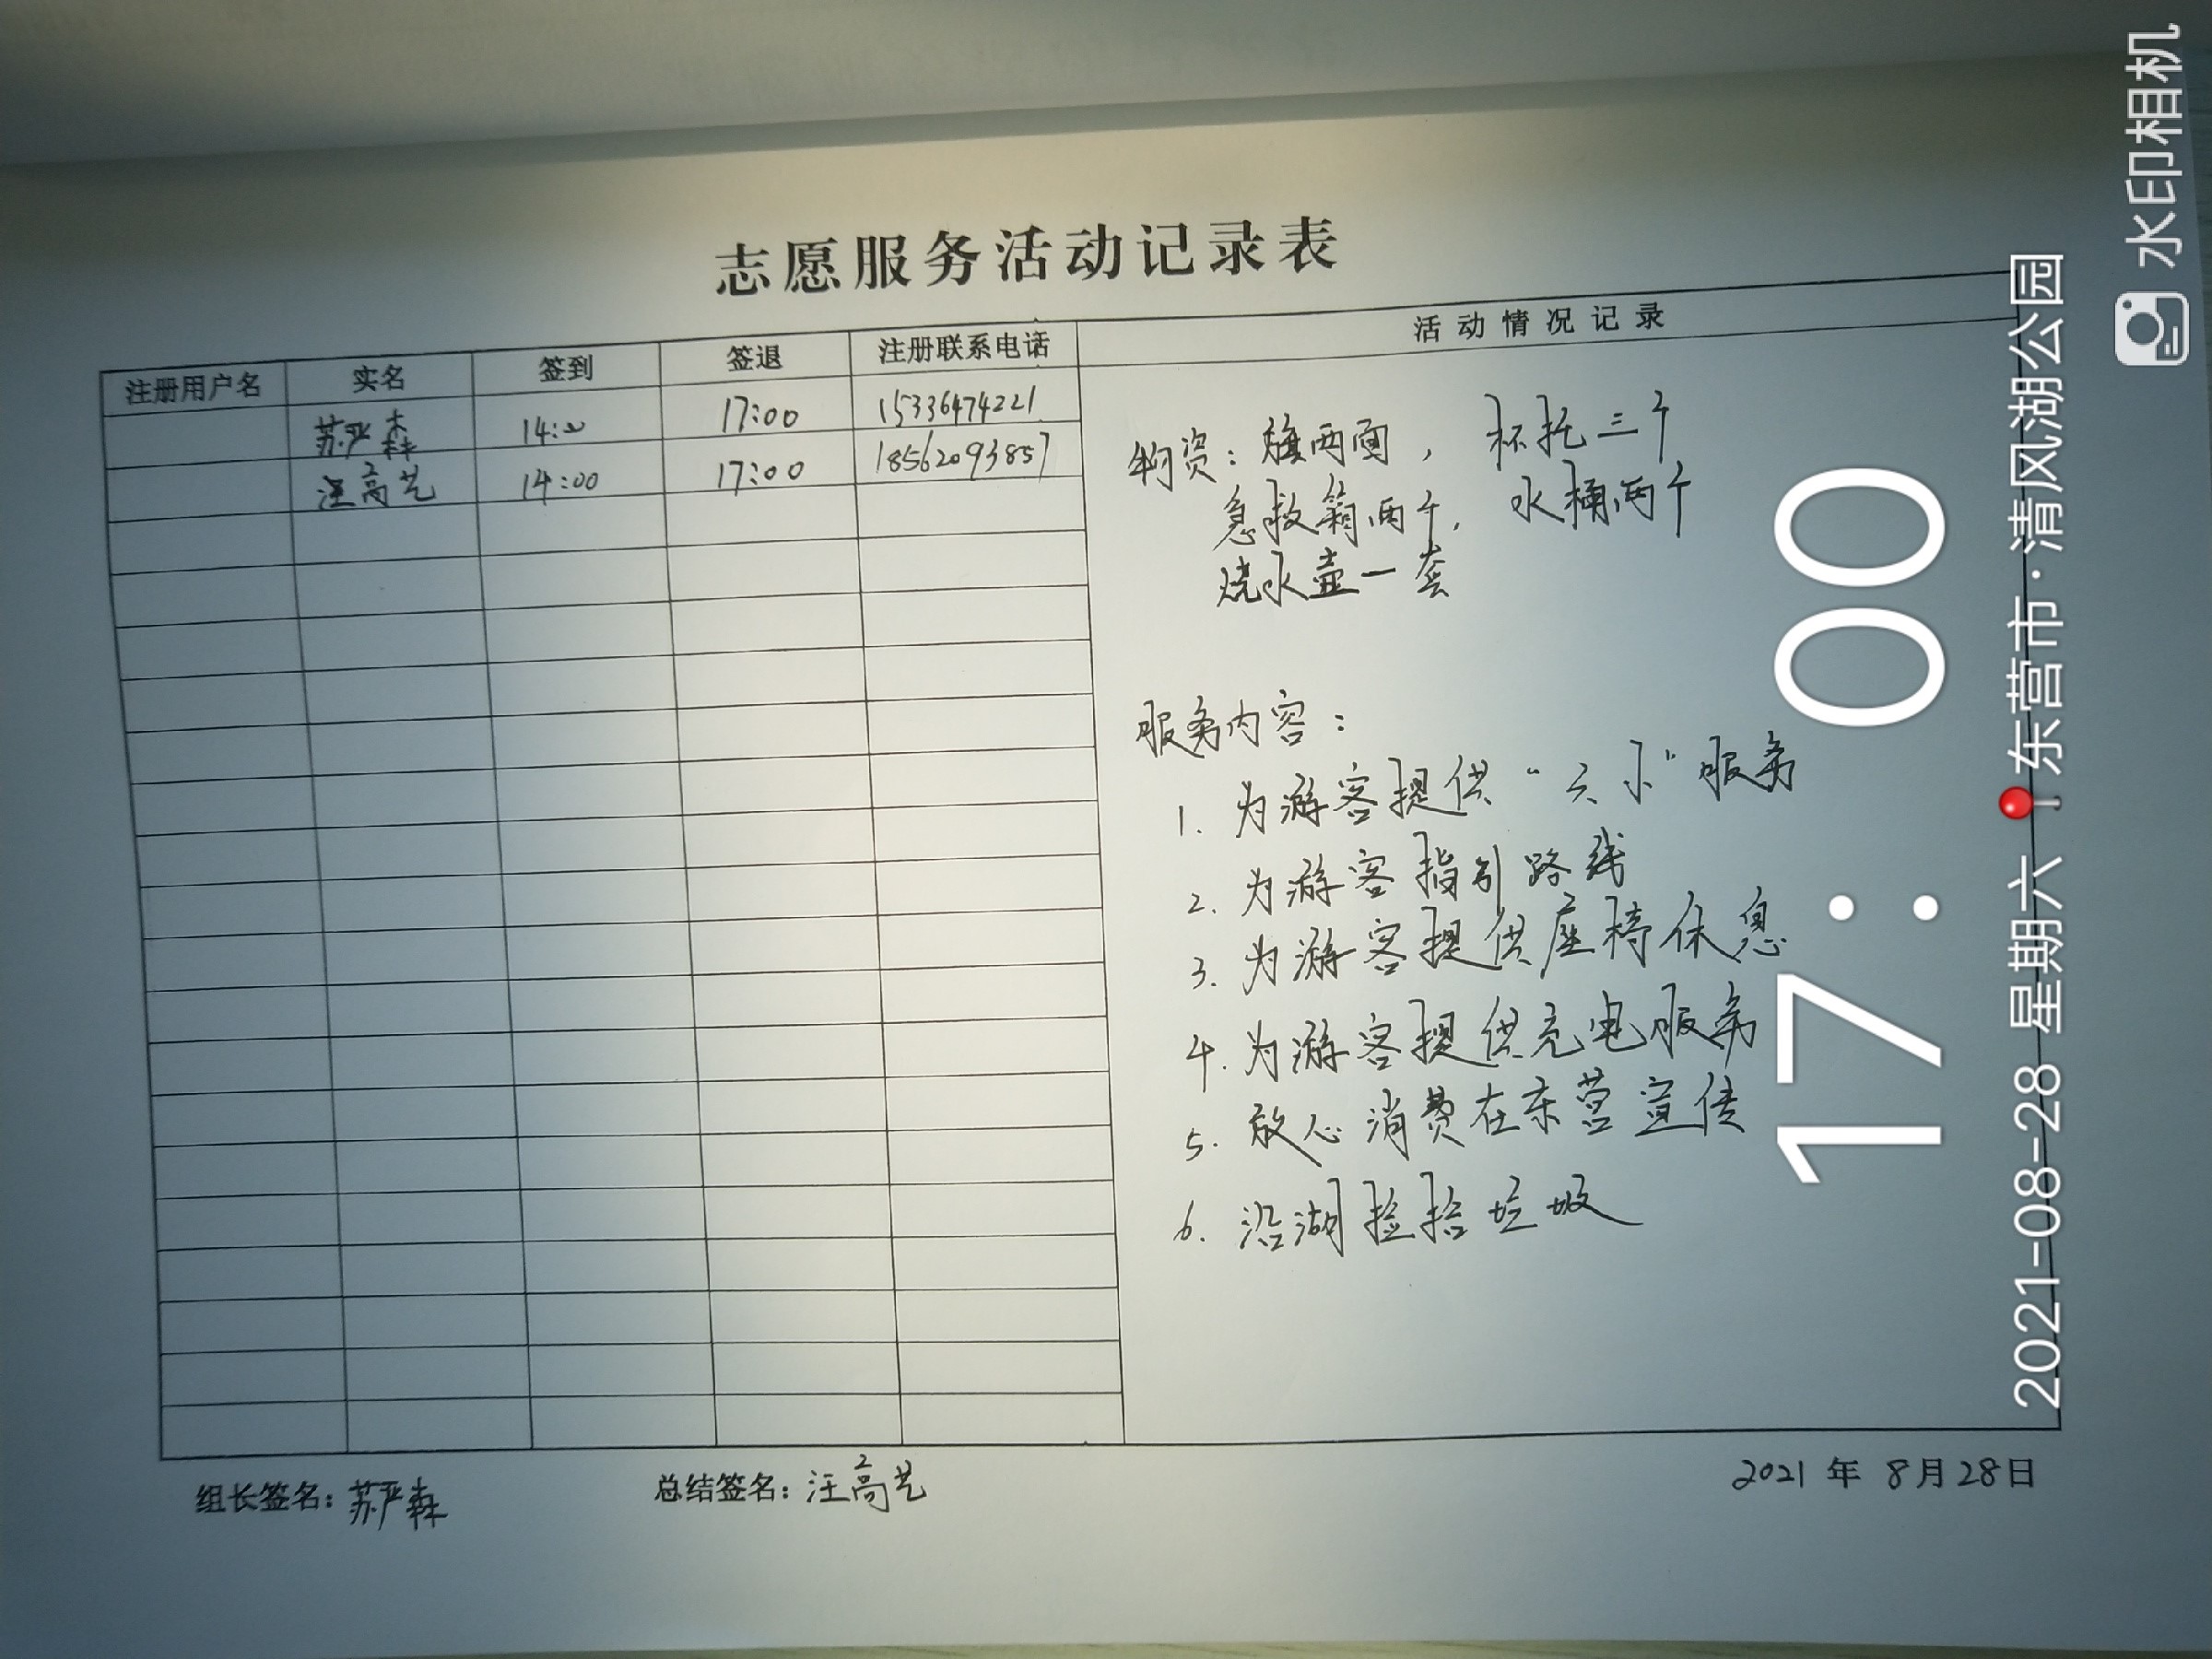 志愿服务活动记录表
注册用户名 实名 签到 签退 注册联系电话 活动情况记录
苏严森 14:00 17:00 15336474221
汪高艺 14:00 17:00 18562093857
物资：旗两面，杯托三个
急救箱两个，水桶两个
烧水壶一套
服务内容：
1. 为游客提供“六小”服务
2. 为游客指引路线
3. 为游客提供座椅休息
4. 为游客提供充电服务
5. 放心消费在东营宣传
6. 沿湖捡拾垃圾
组长签名：苏严森 总结签名：汪高艺 2021年8月28日
17:00
2021-08-28 星期六 东营市·清风湖公园
水印相机